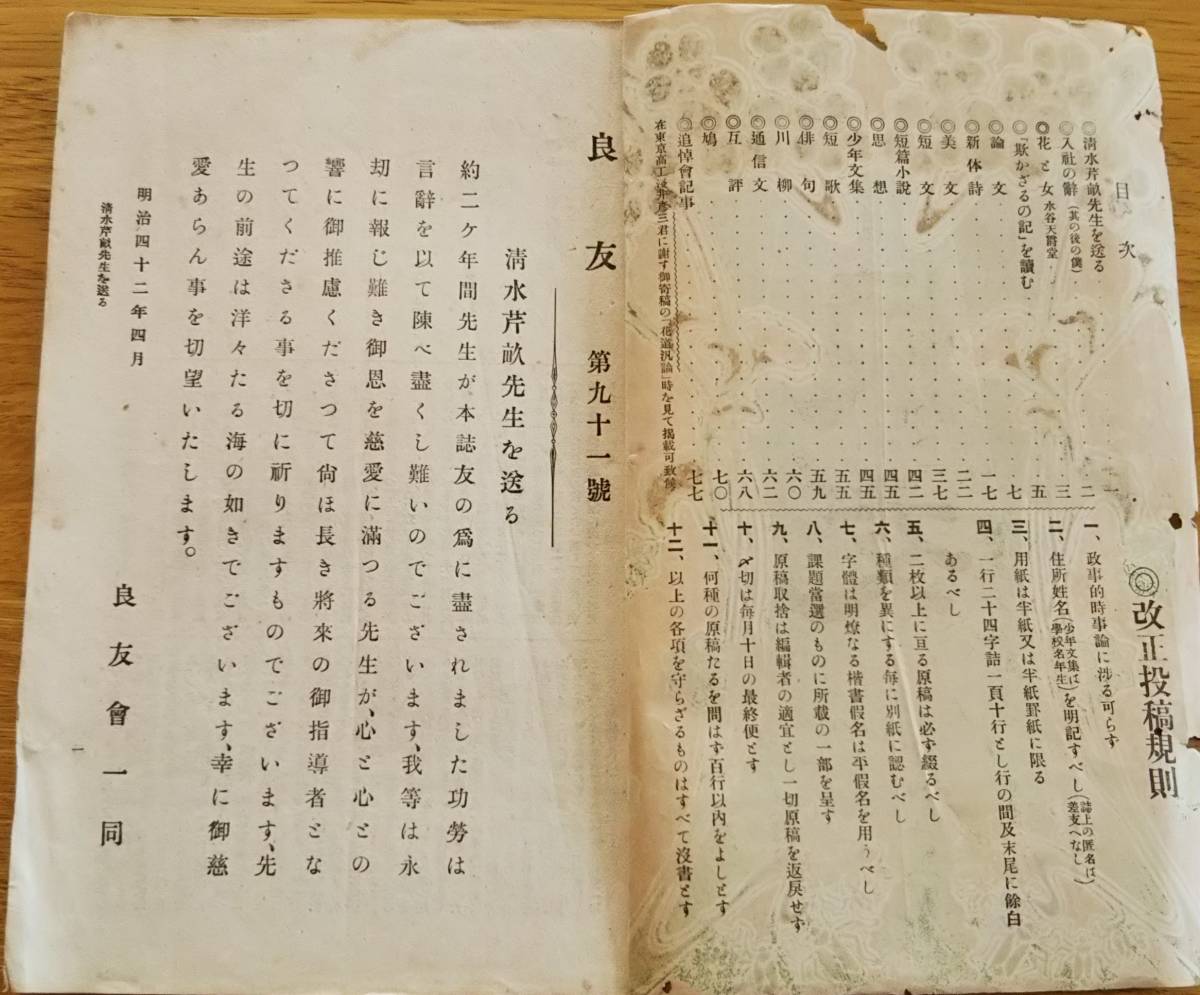 目次
◎清水芹畝先生を送る 一
◎入社の辭(其の後の僕) 二
◎花と女 水谷天爵堂 三
◎『欺かざるの記』を讀む 五
◎論文 七
◎新体詩 一七
◎美文 二二
◎短文 三七
◎短篇小說 四二
◎思想 四五
◎少年文集 四五
◎短歌 五五
◎俳句 五九
◎川柳 六〇
◎通信文 六二
◎互評 六八
◎鳩 七〇
◎追悼會記事 七七
君に謝す御寄稿の「花道汎論」時を見て揭載可致候
◎改正投稿規則
一、政事的時事論に涉る可らず
二、住所姓名(少年文集は學校名年生)を明記すべし(誌上の匿名は差支へなし)
三、用紙は半紙又は半紙罫紙に限る
四、一行二十四字詰一頁十行とし行の間及末尾に餘白
あるべし
五、二枚以上に亘る原稿は必ず綴るべし
六、種類を異にする每に別紙に認むべし
七、字體は明燎なる楷書假名は平假名を用うべし
八、課題當選のものに所載の一部を呈す
九、原稿取捨は編輯者の適宜とし一切原稿を返戾せず
十、〆切は每月十日の最終便とす
十一、何種の原稿たるを問はず百行以內をよしとす
十二、以上の各項を守らざるものはすべて沒書とす
良友 第九十一號
淸水芹畝先生を送る
約二ケ年間先生が本誌友の爲に盡されました功勞は
言辭を以て陳べ盡くし難いのでございます、我等は永
劫に報じ難き御恩を慈愛に滿つる先生が、心と心との
響に御推慮くださつて尙ほ長き將來の御指導者とな
つてくださる事を切に祈りますものでございます、先
生の前途は洋々たる海の如きでございます、幸に御慈
愛あらん事を切望いたします。
明治四十二年四月
良友會一同
淸水芹畝先生を送る
一